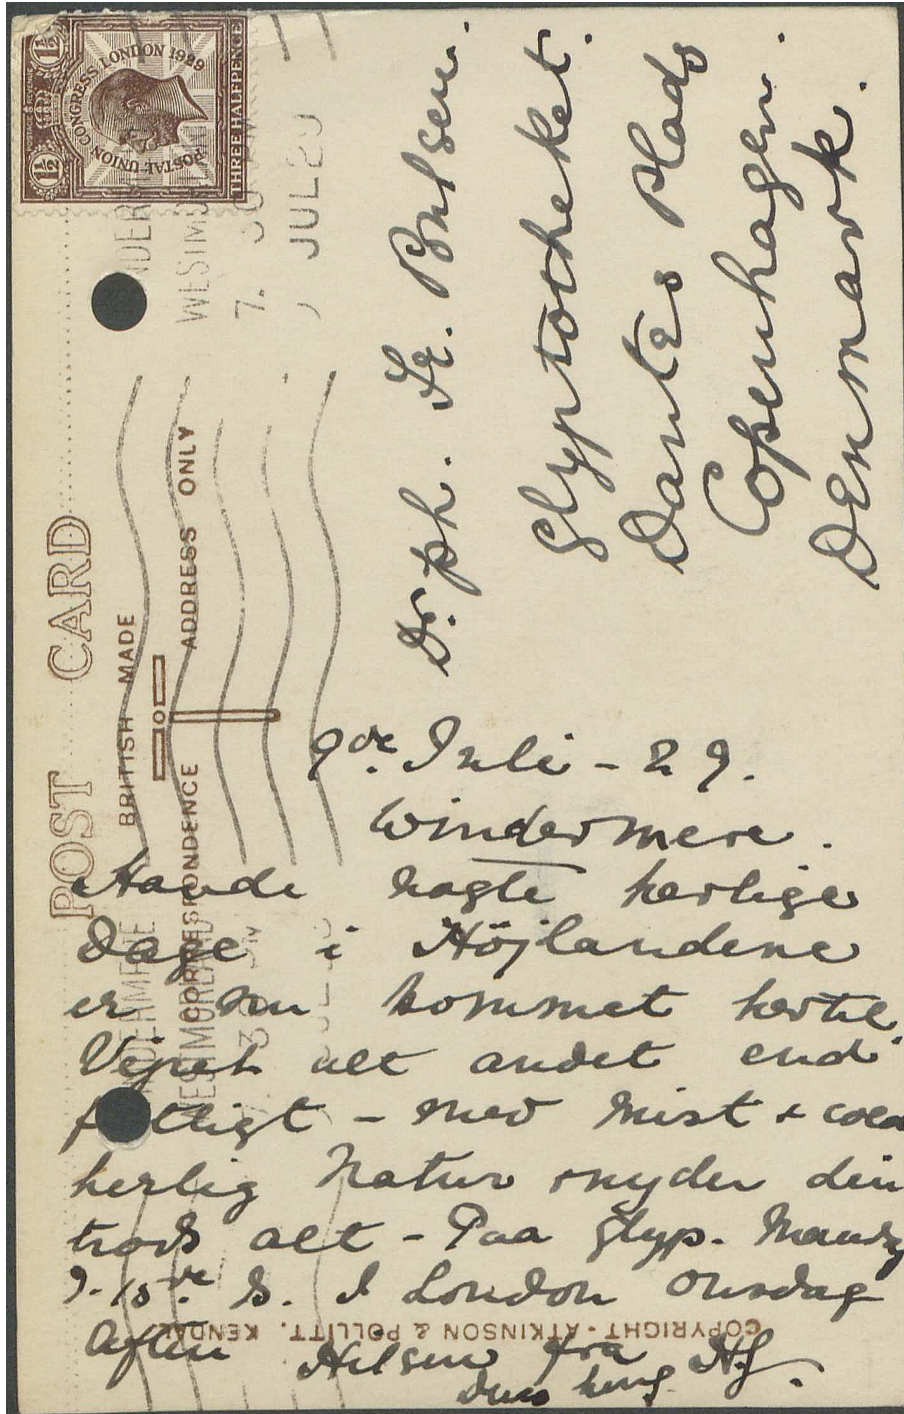 POSTAL UNION CONGRESS LONDON 1929
1½ 1½
THREE HALFPENCE
POST CARD
BRITISH MADE
CORRESPONDENCE ADDRESS ONLY
WINDERMERE
WESTMORLAND
7. 30
JUL 29
Dr. ph. Fr. Poulsen.
Glyptotheket.
Dantes Plads
Copenhagen.
Denmark.
9de Juli - 29.
Windermere.
Havde nogle herlige
Dage i Höjlandene
er nu kommet hertil.
Vejret alt andet end
- med Mist + cold
herlig Natur + nyder den
trods alt - Paa Glyp. Mandag
d. 15de ds. I London Onsdag
Aften Hilsen fra HJ.
Deres heng.
COPYRIGHT - ATKINSON & POLLITT. KENDAL